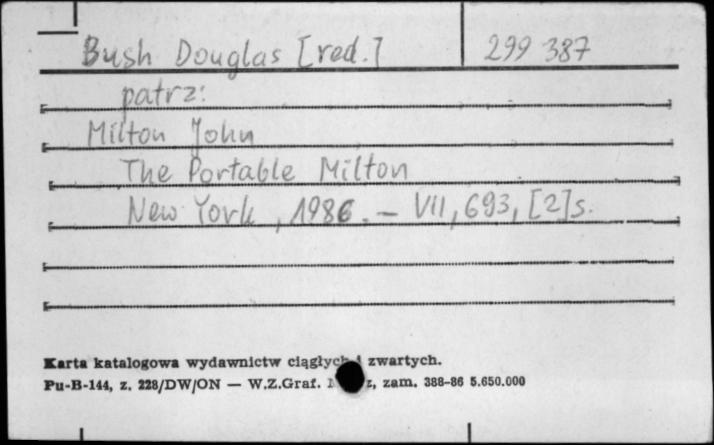 Bush Douglas [red.] 299 387
patrz:
Milton John
The Portable Milton
New York, 1986. – VII, 693, [2]s.
Karta katalogowa wydawnictw ciągłych i zwartych.
Pu-B-144, z. 228/DW/ON — W.Z.Graf. zam. 388-86 5.650.000